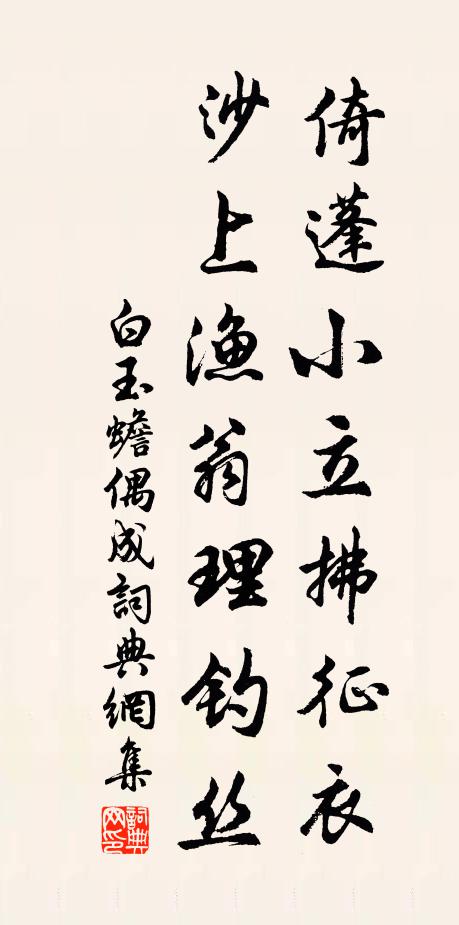 倚蓬小立拂征衣
沙上漁翁理钓丝
白玉蟾偶成詞典網集
詞典网印